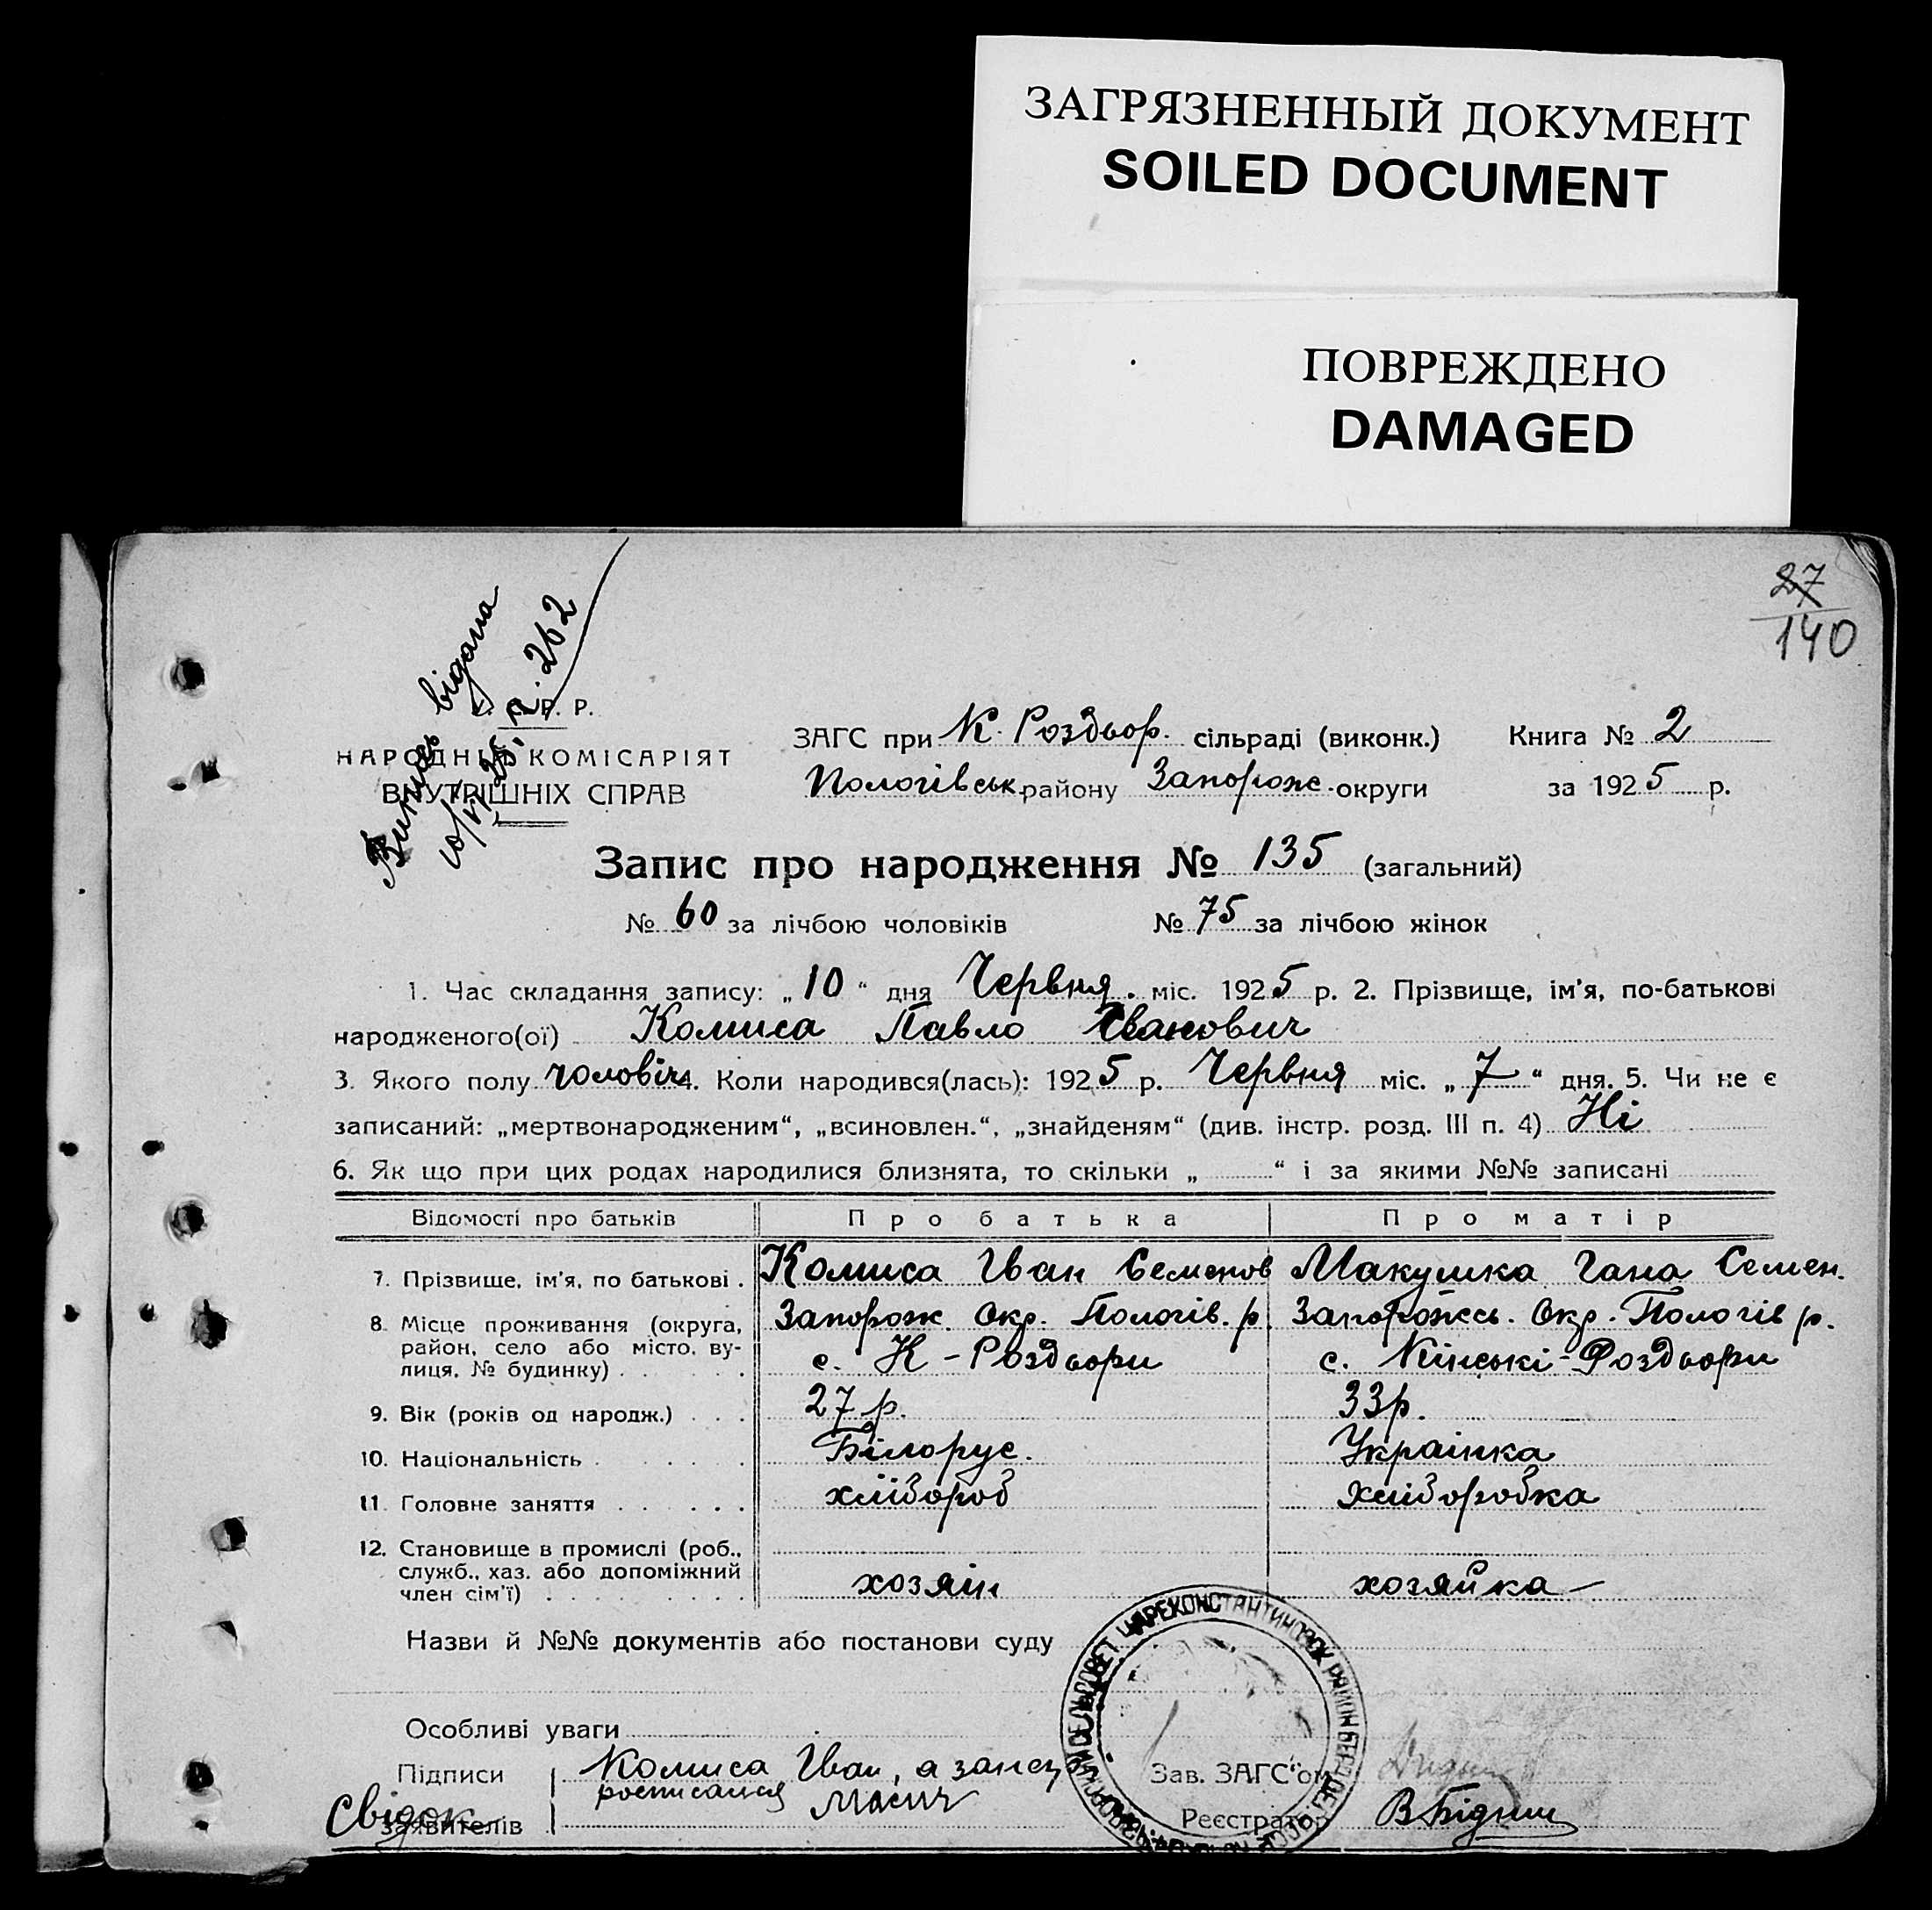 ЗАГРЯЗНЕННЫЙ ДОКУМЕНТ
SOILED DOCUMENT
ПОВРЕЖДЕНО
DAMAGED
27
140
Випись відана
10/VI 25. п. 262
У. С. Р. Р.
НАРОДНІЙ КОМІСАРІЯТ
ВНУТРІШНІХ СПРАВ
ЗАГС при К. Роздвор. сільраді (виконк.) Книга № 2
Пологівськ. району Запорож. округи за 1925 р.
Запис про народження № 135 (загальний)
№ 60 за лічбою чоловіків № 75 за лічбою жінок
1. Час складання запису: „10“ дня Червня. міс. 1925 р. 2. Прізвище, ім'я, по-батькові
народженого(ої) Комиса Павло Іванович
3. Якого полу чоловіч 4. Коли народився(лась): 1925 р. Червня міс. „7“ дня. 5. Чи не є
записаний: „мертвонародженим“, „всиновлен.“, „знайденям“ (див. інстр. розд. III п. 4) Ні
6. Як що при цих родах народилися близнята, то скільки „ “ і за якими №№ записані
Відомості про батьків Про батька Про матір
7. Прізвище, ім'я, по батькові . Комиса Іван Семенов Макушка Гана Семен.
8. Місце проживання (округа, район, село або місто, вулиця, № будинку) Запорож. Окр. Пологів. р. Запорожсь. Окр. Пологів р.
с. К-Роздвори с. Кінські-Роздвори
9. Вік (років од народж.) . . . 27 р. 33 р.
10. Національність . . . . Білорус. Українка
11. Головне заняття . . . . . хлібороб хліборобка
12. Становище в промислі (роб., служб., хаз. або допоміжний член сім'ї) хозяін хозяйка —
Назви й №№ документів або постанови суду
Особливі уваги
Підписи Комиса Іван, а за Зав. ЗАГС'ом
заявителів росписался Реєстратор В Бідний
Свідок